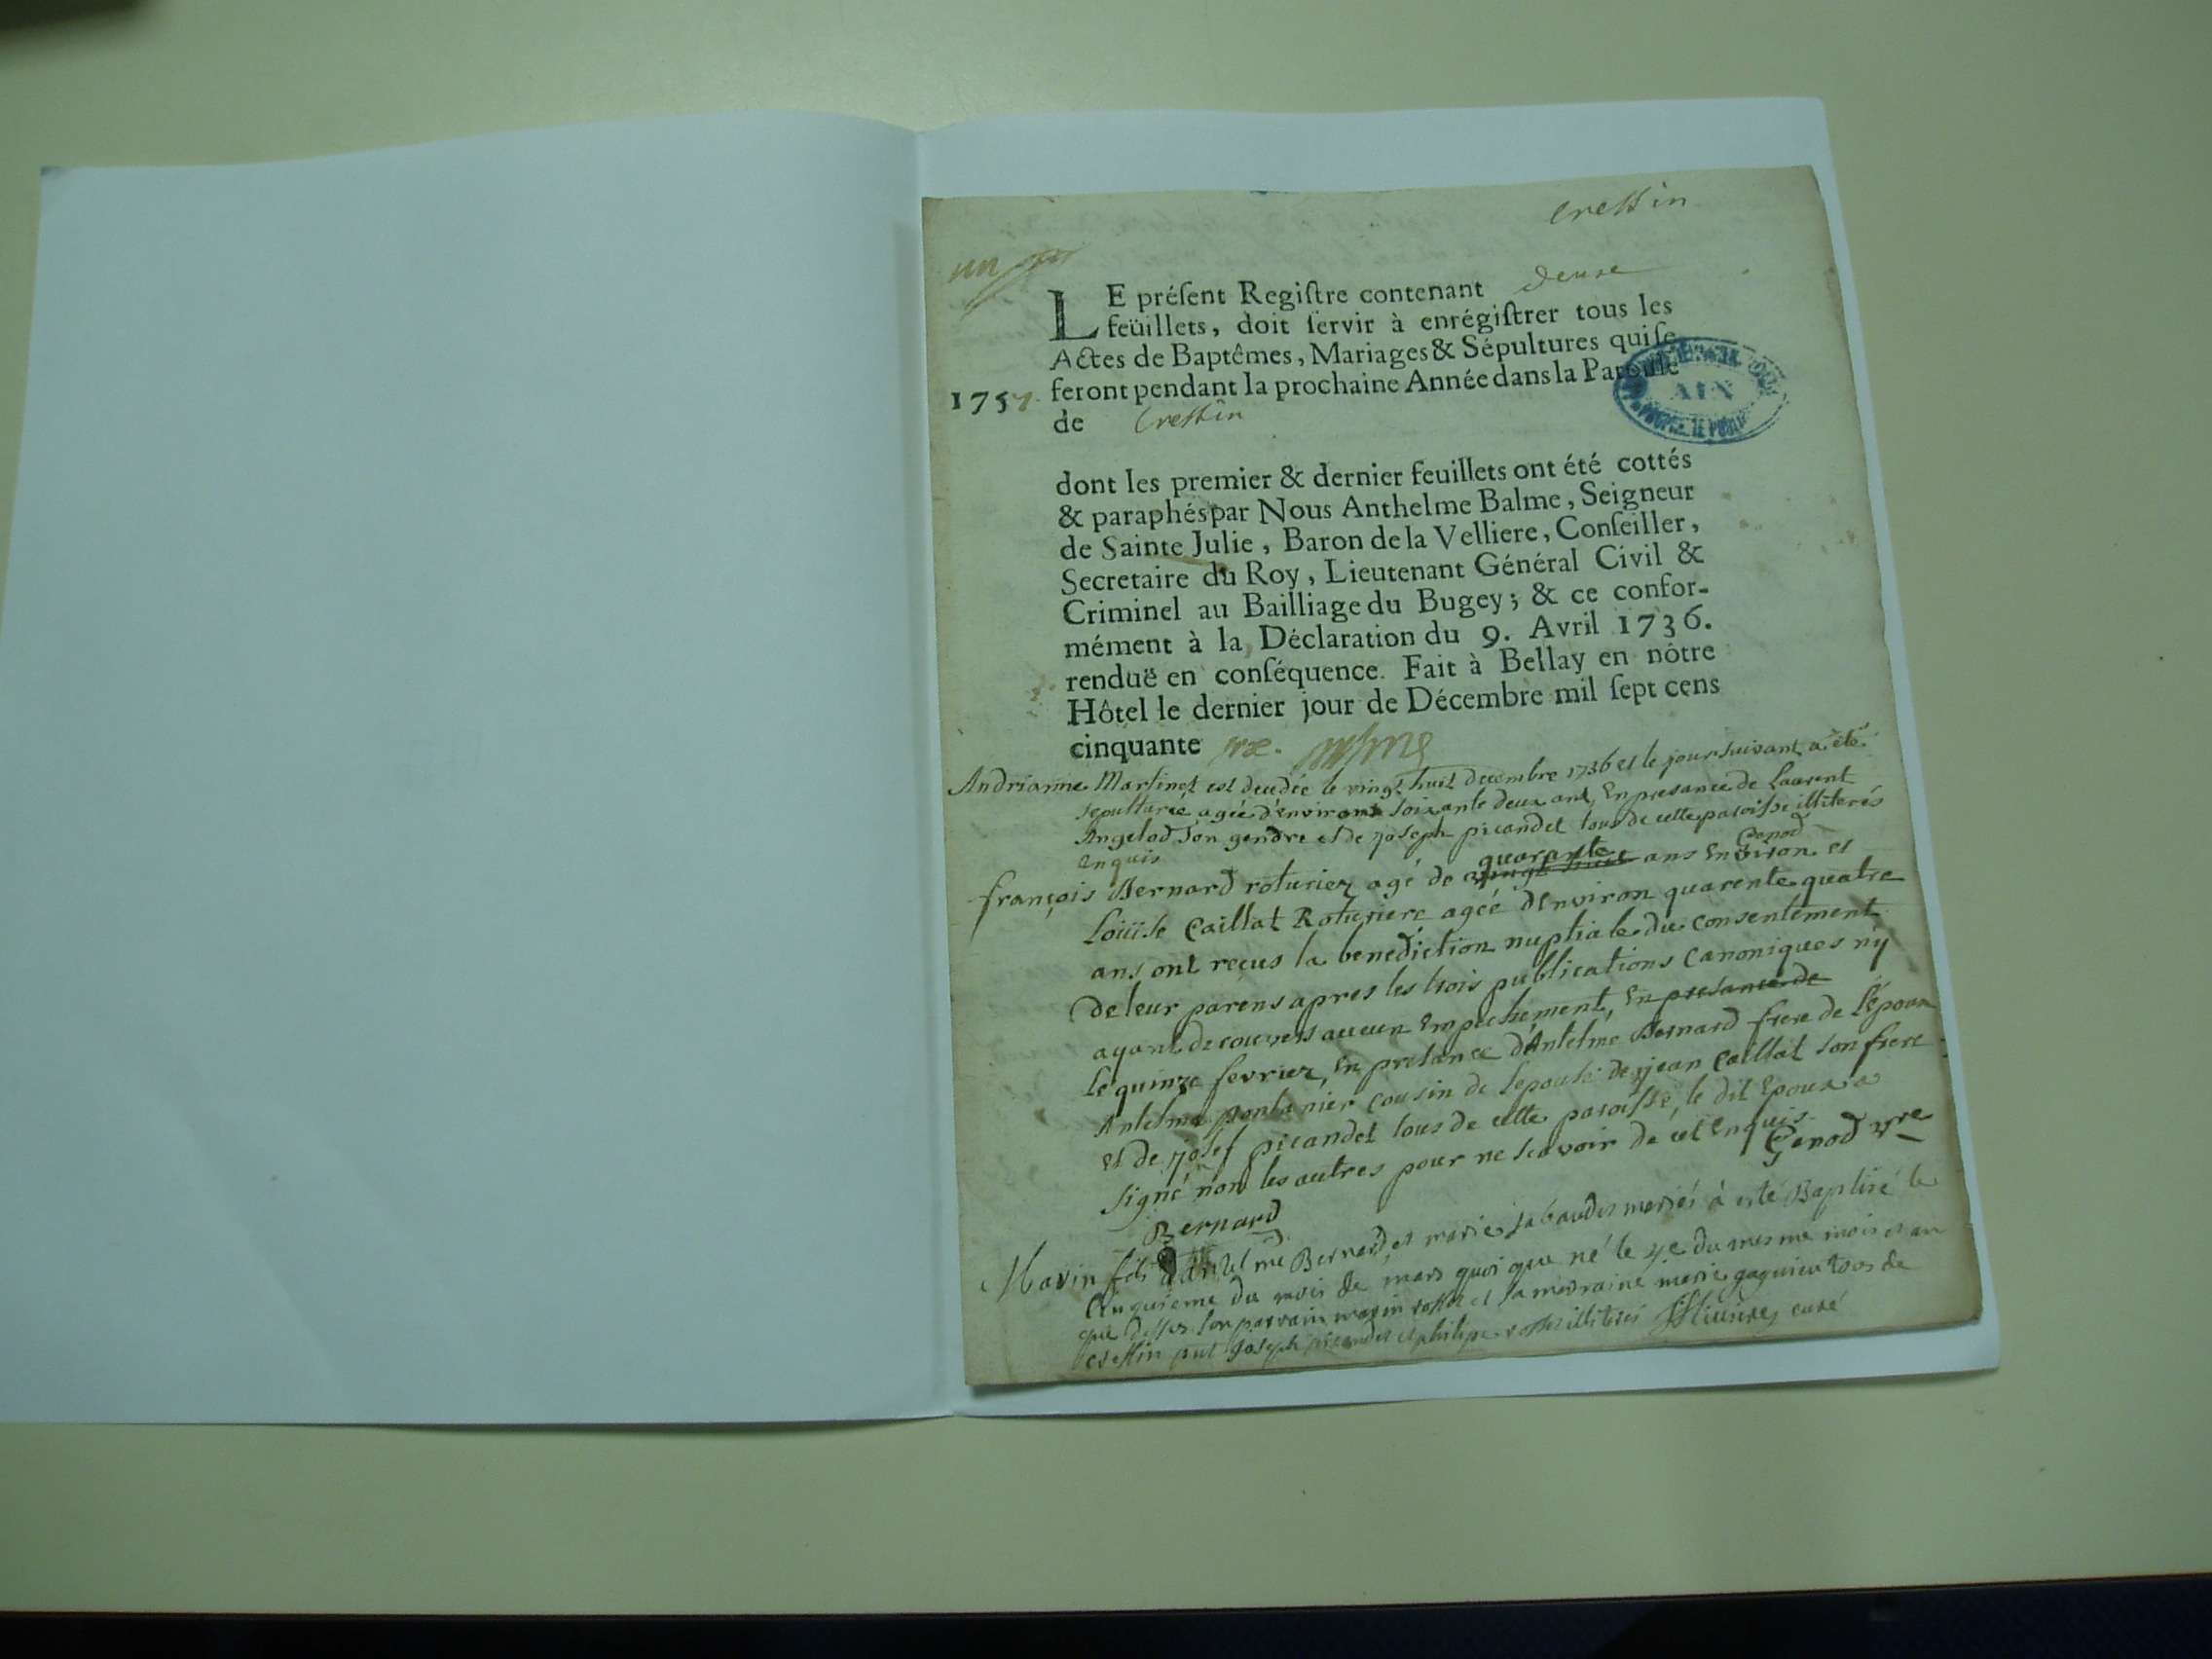 Cressin
un
LE préſent Regiſtre contenant deux
feüillets, doit ſervir à enrégiſtrer tous les
Actes de Baptêmes, Mariages & Sépultures qui ſe
1757. feront pendant la prochaine Année dans la Paroiſſe
de Cressin
AIN
dont les premier & dernier feuillets ont été cottés
& paraphés par Nous Anthelme Balme, Seigneur
de Sainte Julie, Baron de la Velliere, Conſeiller,
Secretaire du Roy, Lieutenant Général Civil &
Criminel au Bailliage du Bugey; & ce confor-
mément à la Déclaration du 9. Avril 1736.
renduë en conſéquence. Fait à Bellay en nôtre
Hôtel le dernier jour de Décembre mil ſept cens
cinquante six.
Andrianne Martinet est decedée le vingt huit decembre 1756 et le jour suivant a été
sepulturée agée d'environ soixante deux ans, En presance de Laurent
Angelod son gendre et de joseph picandet tous de cette paroisse illiterés
enquis Genod
françois Bernard roturier agé de quarante ans Environ et
Loüise Caillat Roturiere agée dEnviron quarente quatre
ans ont reçus la benediction nuptiale du consentement
de leur parens apres les trois publications canoniques n'y
ayant decouvert aucun Empechement, En presance de
le quinze fevrier, En presance d'Antelme Bernard frere de l'époux
Antelme pontanier cousin de l'epouse de jean Caillat son frere
et de josef picandet tous de cette paroisse, le dit Epoux a
signé non les autres pour ne scavoir de cet Enquis.
Bernard Genod vre
Mavin fils d'antelme Bernard et marie jabaudet mariés à esté Baptisé le
Cinquieme du mois de mars quoi que né le 4e du mesme mois et an
que dessus son parrain mavin rosset et sa marraine marie gaguieu tous de
cressin pnt joseph picandet et philipe rosset illiterés curé